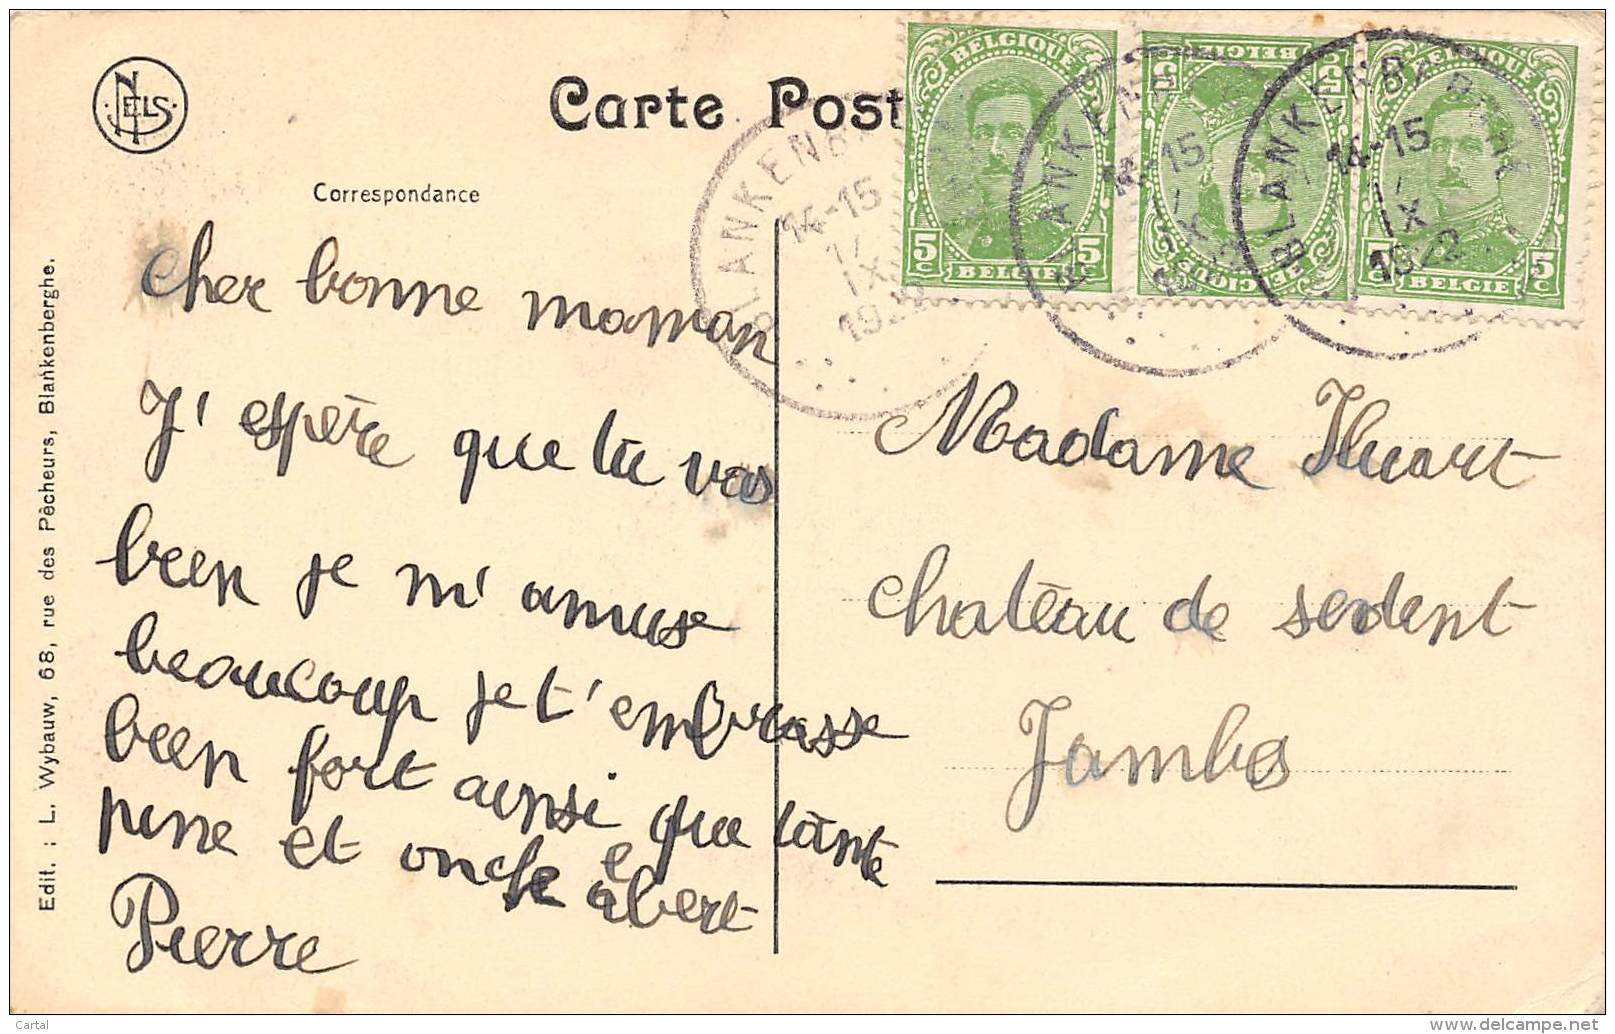 NELS
Carte Post
Correspondance
BELGIQUE
5c 5c
BELGIE
BELGIQUE
5 5
BELGIE
BELGIQUE
5 5c
BELGIE
BLANKENB
14-15
IX
BLANKEN
14-15
BLANKENB
14-15
IX
1922
cher bonne maman
J'espère que tu vas
bien je m'amuse
beaucoup je t'embrasse
bien fort ainsi que tante
et oncle abert
Pierre
Madame Huart
chatêau de
Jambes
Edit. : L. Wybauw, 68, rue des Pêcheurs, Blankenberghe.
Cartal
www.delcampe.net